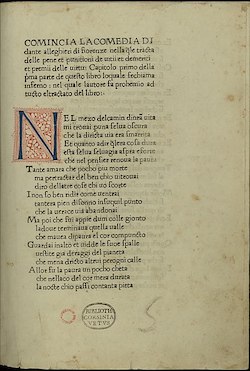 COMINCIA LA COMEDIA DI
dante alleghieri di fiorenze nella q̃le tracta
delle pene et punitioni de uitii et demeriti
et premii delle uirtu: Capitolo primo della
p̃ma parte de questo libro loquale sechiama
inferno: nel quale lautore fa prohemio ad
tucto el tractato del libro:
NEL mezo delcamin dinr̃a uita
mi trouai puna selua oscura
che la diricta uia era smarrita
Et quanto adir q̃lera cosa dura
esta selua seluagia aspra eforte
che nel pensier renoua la paura
Tante amara che pocho piu morte
ma pertractar del ben chio uitrouai
diro dellaltre cose chi uo scorte
I non so ben ridir come uentrai
tantera pien disonno insuquil punto
che la uerace uia abandonai
Ma poi che fui appie dum colle gionto
ladoue terminaua quella ualle
che mauea dipaura el cor compuncto
Guardai inalto et uidde le soue spalle
uestite gia deraggi del pianeta
che mena dricto altrui perogni calle
Allor fu la paura un pocho cheta
che nellaco del cor mera durata
la nocte chio passi contanta pieta
BIBLIOTH
CORSINIA
VETVS